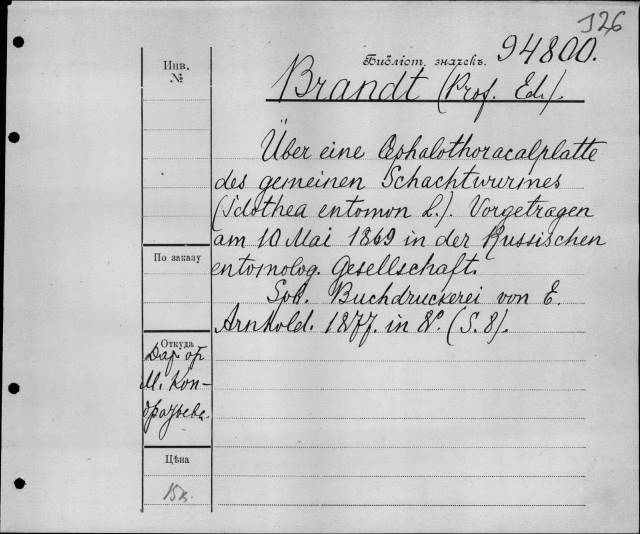 126
Библіот. значекъ. 94800.
Инв.
№
Brandt (Prof. Ed.).
Über eine Cephalothoracalplatte
des gemeinen Schachtwurmes
(Idothea entomon L.). Vorgetragen
am 10 Mai 1869 in der Russischen
entomolog. Gesellschaft.
Spb. Buchdruckerei von E.
Arnhold. 1877. in 8º. (S. 8).
По заказу
Откуда
Дар. ор
М. Кон-
дратьева
Цѣна
15к.